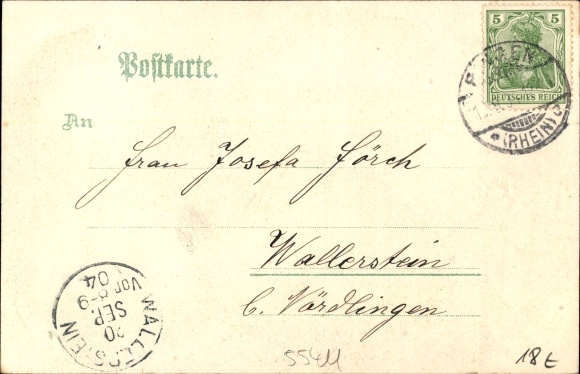 5 5
DEUTSCHES REICH
(RHEIN)
Postkarte.
An
Frau Josefa Förch
Wallerstein
b. Nördlingen
WALLERSTEIN
20
SEP.
04
Vor. 8-9
55411
18 E